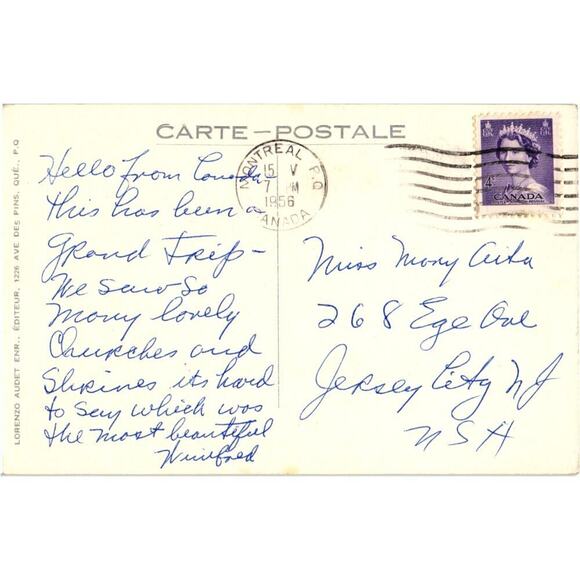 CARTE-POSTALE
Hello from Canada-
this has been a
Grand Trip-
We saw so
many lovely
Churches and
Shrines its hard
to say which was
the most beautiful
Winifred
MONTREAL P.Q.
15 V
7 PM
1956
CANADA
4¢
CANADA
Miss Mary Aita
268 Ege Ave
Jersey City NJ
USA
LORENZO AUDET ENR., ÉDITEUR, 1226 AVE DES PINS, QUÉ., P.Q